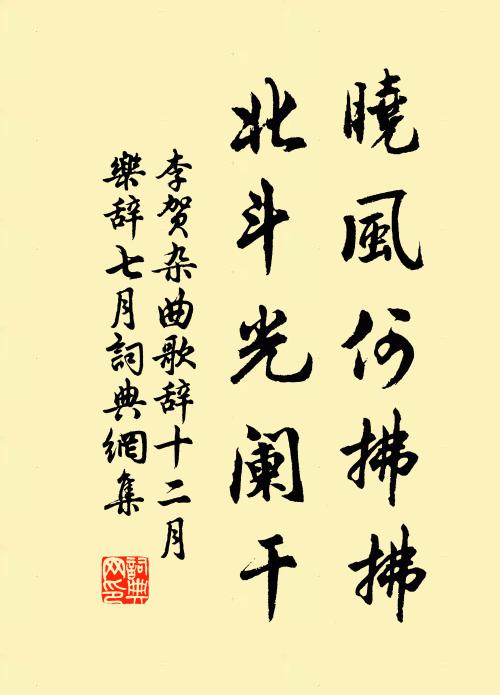 曉風何拂拂
北斗光阑干
李贺杂曲歌辞十二月
樂辞七月詞典網集
詞典
网印